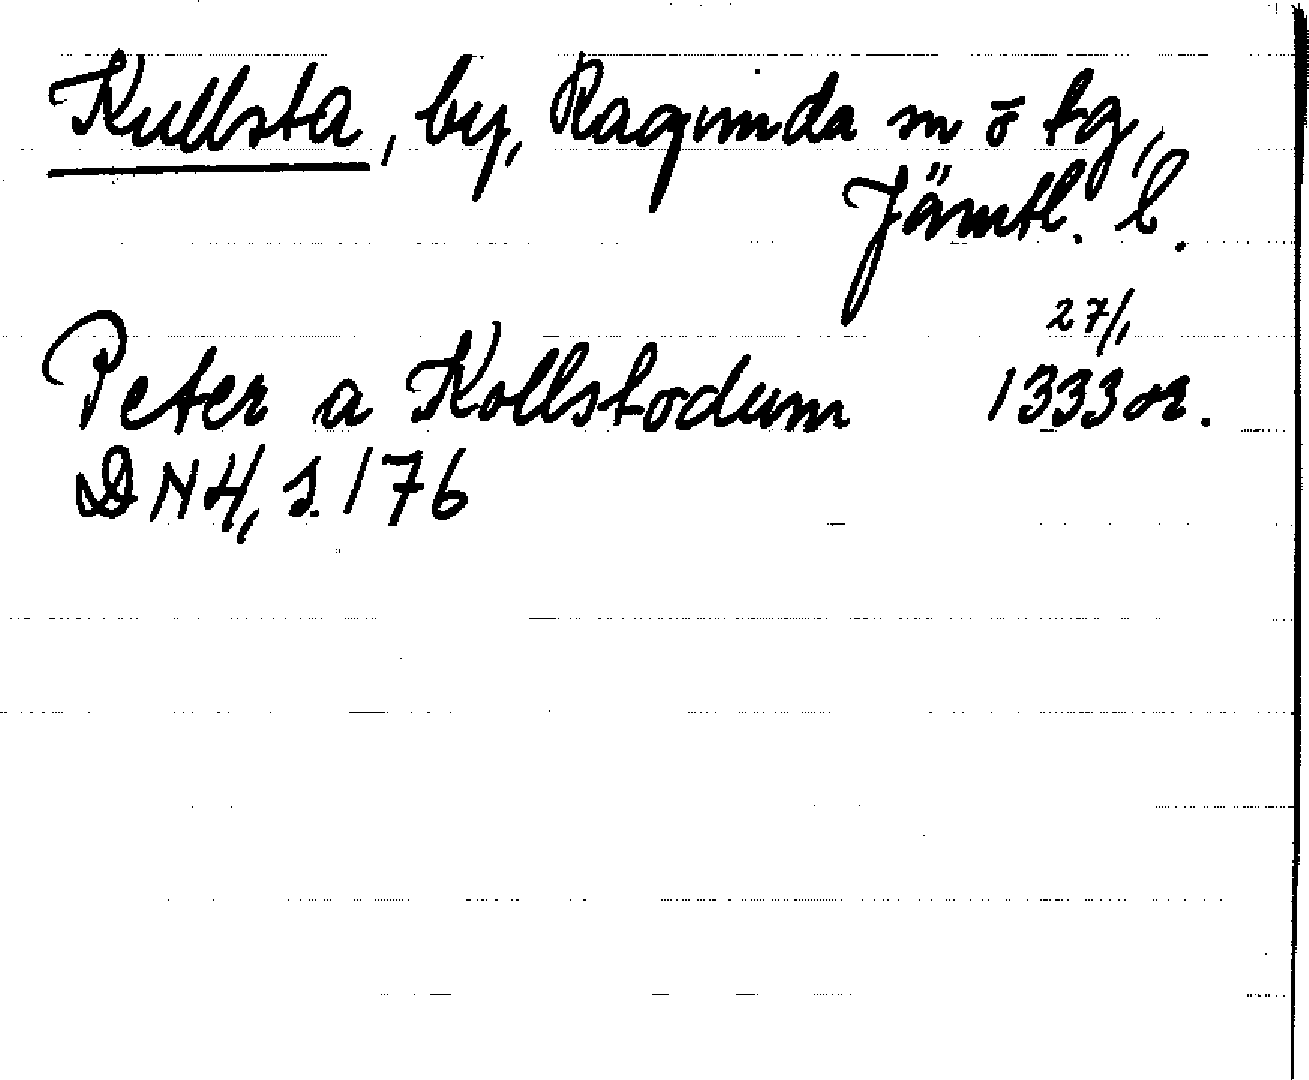 Kullsta, by, Ragunda sn o tg,
Jämtl. l.
27/1
Peter a Kollstodum 1333 or.
DN 4, s. 176